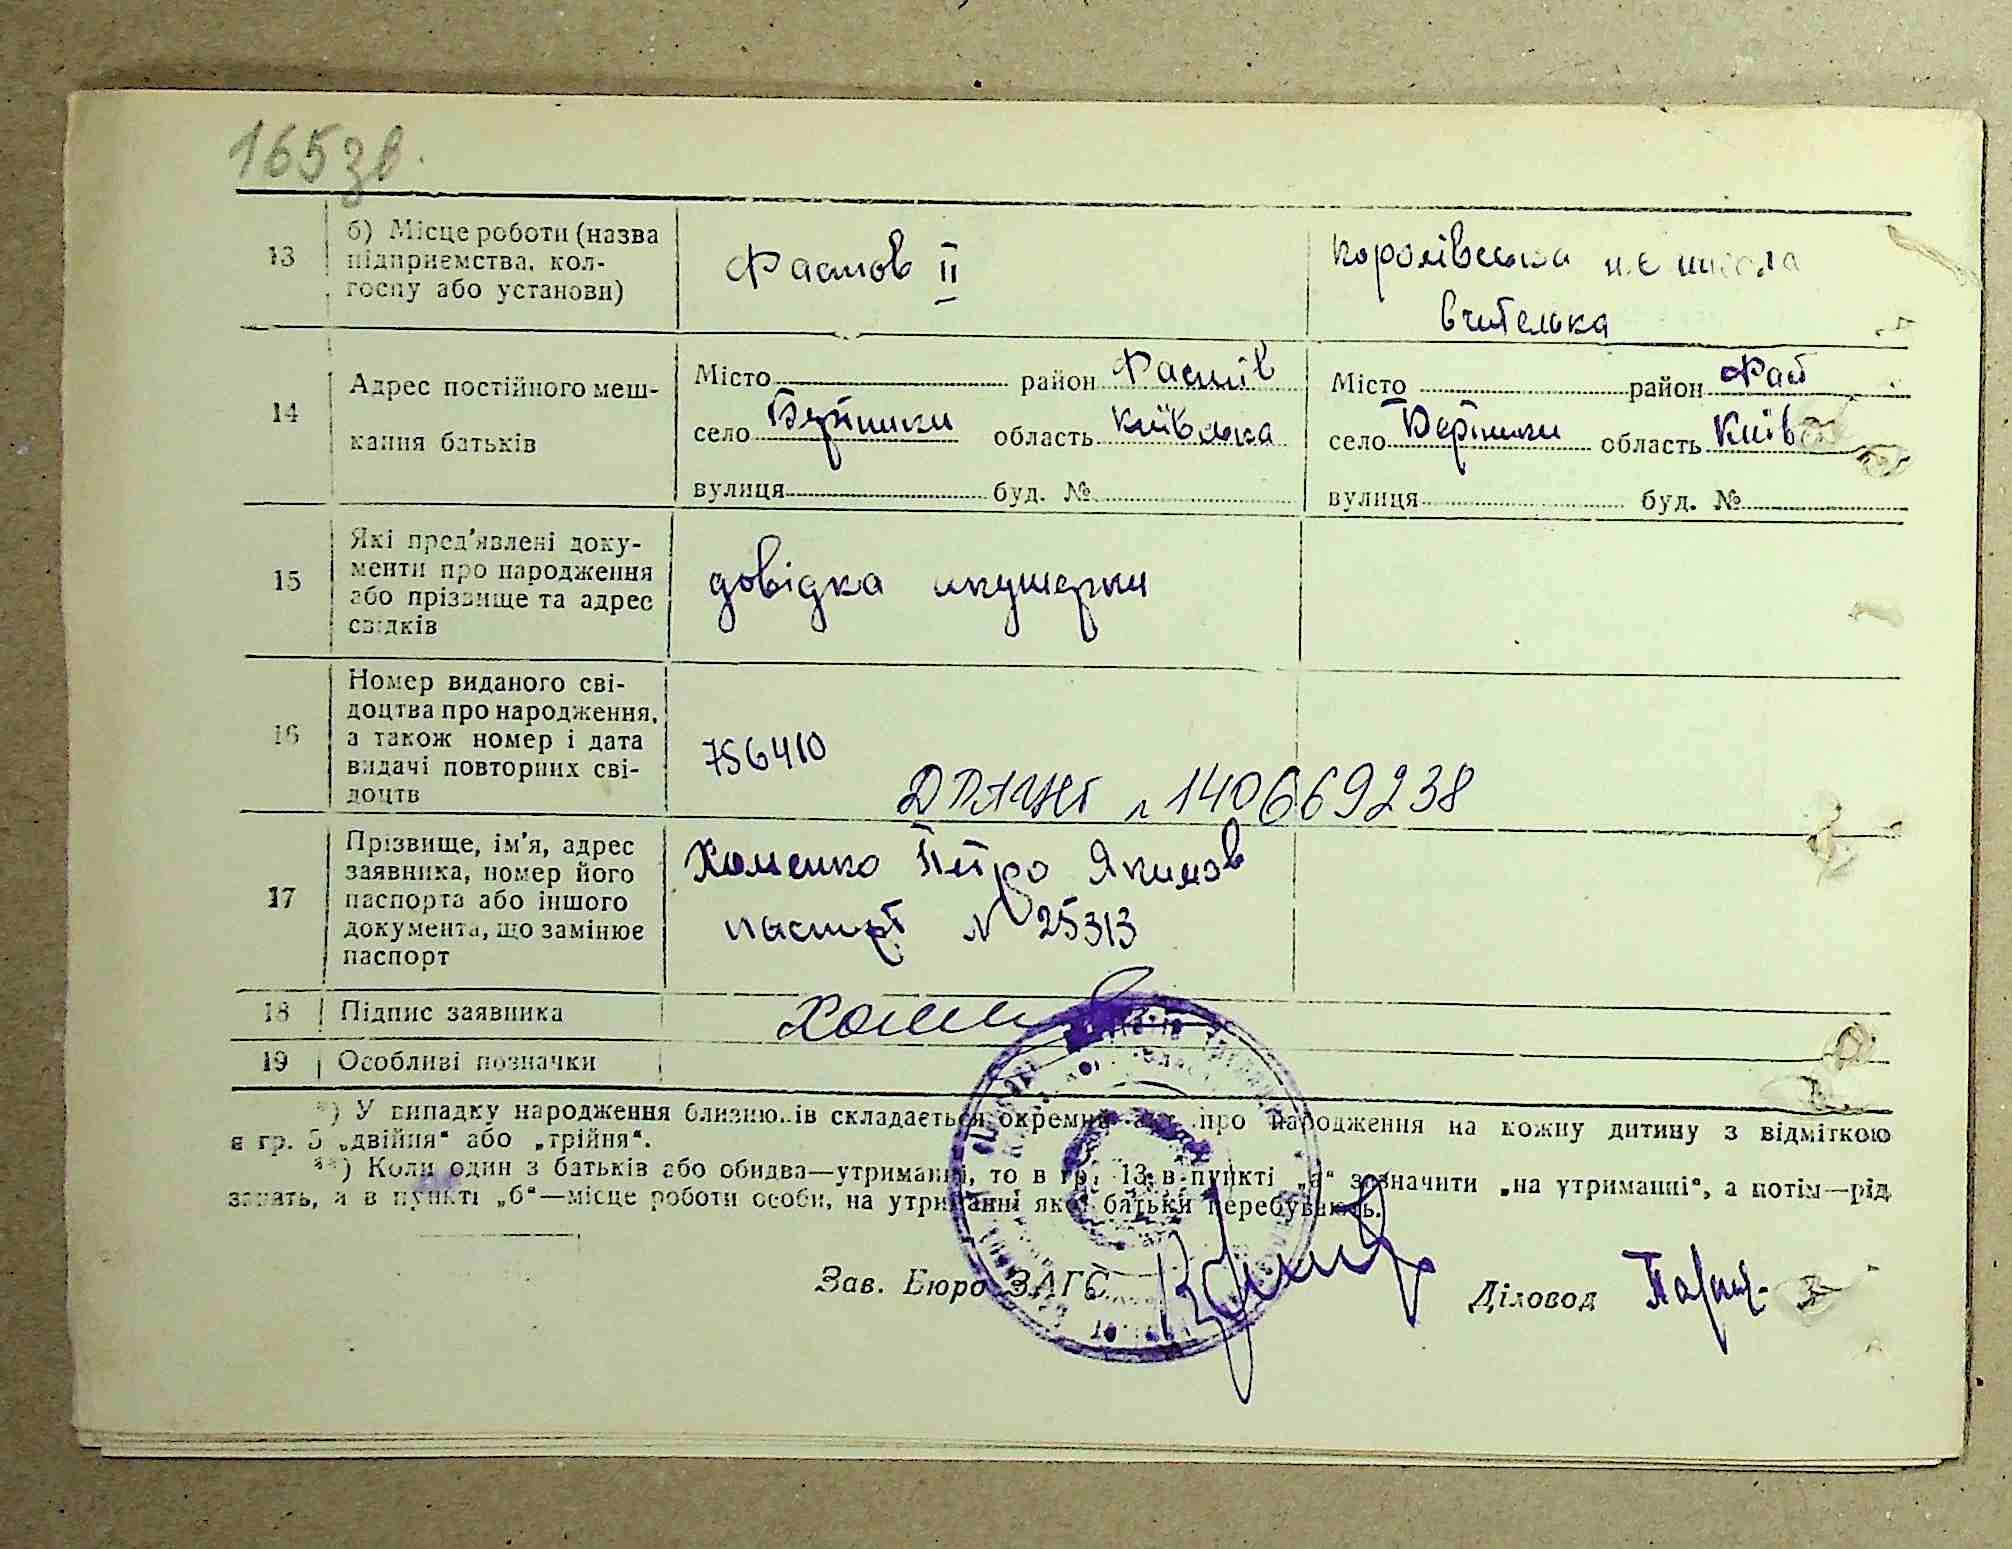 165 зв.
13
б) Місце роботи (назва
підприємства, кол-
госпу або установи)
Фастов II
школа
вчителька
14
Адрес постійного меш-
кання батьків
Місто район Фастів
село область Київська
вулиця буд. №
Місто район Фаст
село область Київ
вулиця буд. №
15
Які пред'явлені доку-
менти про народження
або прізвище та адрес
свідків
довідка акушерки
16
Номер виданого сві-
доцтва про народження,
а також номер і дата
видачі повторних сві-
доцтв
756410
ДРАЦНГ 140669238
17
Прізвище, ім'я, адрес
заявника, номер його
паспорта або іншого
документа, що замінює
паспорт
Хоменко Петро Якимов
паспорт № 25313
18
Підпис заявника
19
Особливі позначки
*) У випадку народження близнюків складається окремий акт про народження на кожну дитину з відміткою
в гр. 5 „двійня“ або „трійня“.
**) Коли один з батьків або обидва—утриманці, то в гр. 13 в пункті „а“ зазначити „на утриманні“, а потім—рід
занять, а в пункті „б“—місце роботи особи, на утриманні якої батьки перебувають.
Зав. Бюро ЗАГС
Діловод